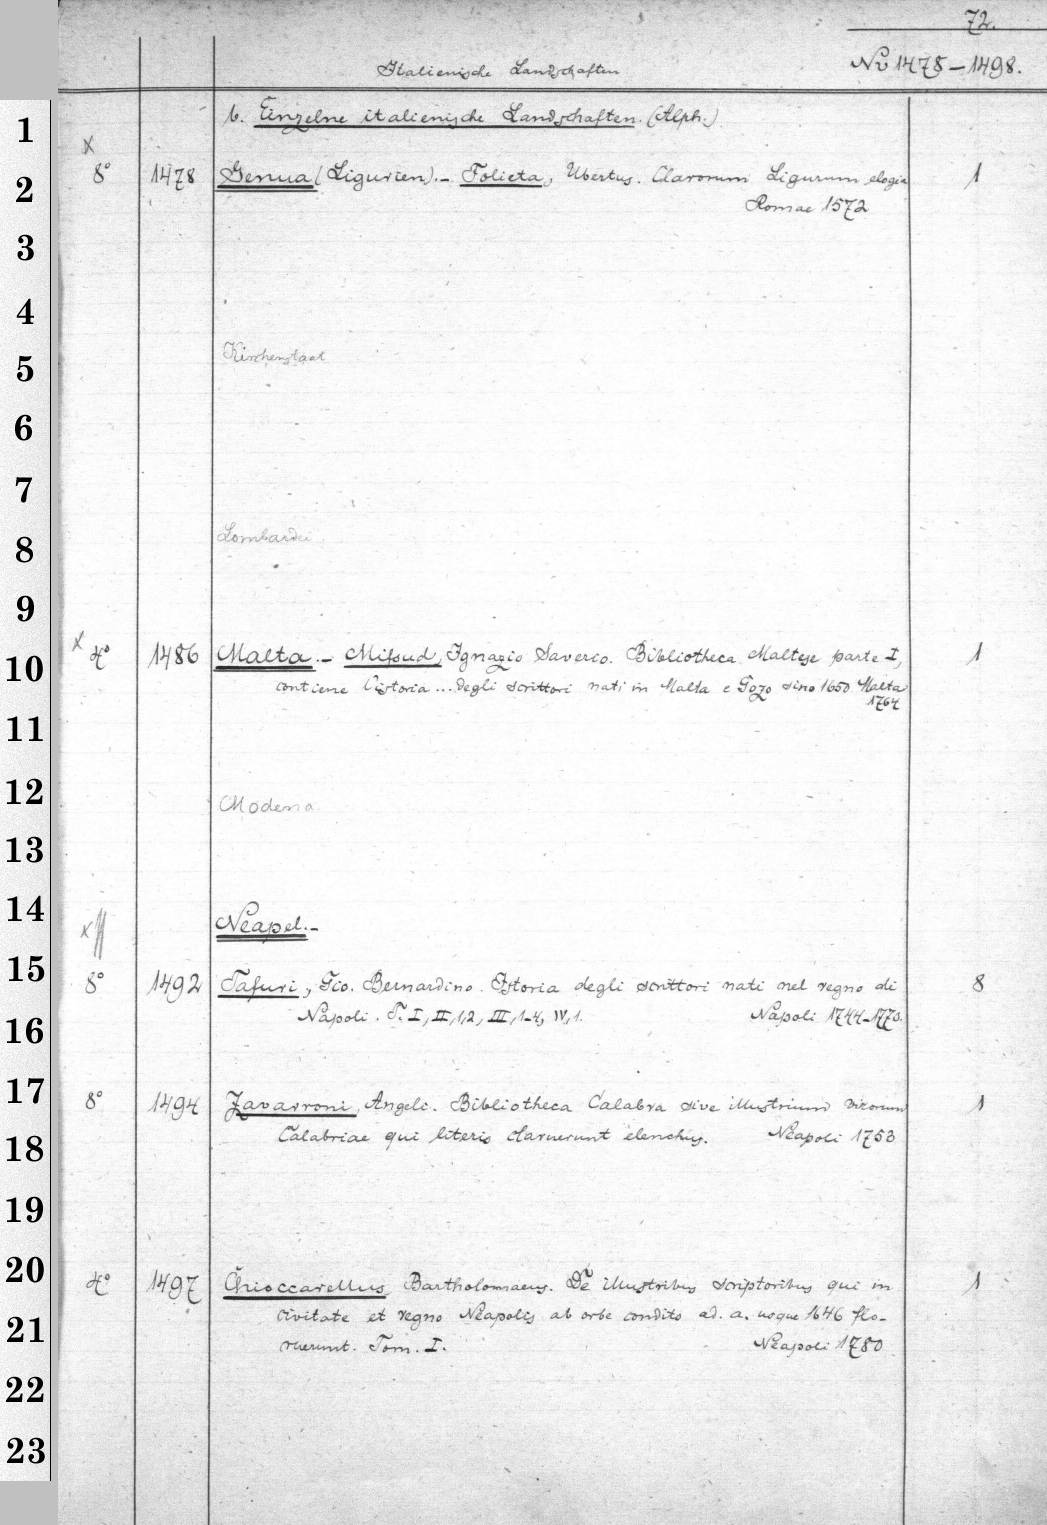 72.
Italienische Landschaften No 1478-1498.
1 b. Einzelne italienische Landschaften. (Alph.)
x
2 8° 1478 Genua (Ligurien).- Folieta, Ubertus. Clarorum Ligurum elogia 1
Romae 1572
3
4
5 Kirchenstaat
6
7
8 Lombardei
9
x
10 4° 1486 Malta.- Mifsud, Ignazio Saverio. Bibliotheca Maltese parte I, 1
contiene l'istoria ... degli scrittori nati in Malta e Gozo sino 1650 Malta
1764
11
12 Modena
13
14 x Neapel.-
15 8° 1492 Tafuri, Gio. Bernardino. Istoria degli scrittori nati nel regno di 8
16 Napoli. T. I, II,1,2, III,1-4, IV,1. Napoli 1744-1770.
17 8° 1494 Zavarroni, Angelo. Bibliotheca Calabra sive illustrium virorum 1
18 Calabriae qui literis claruerunt elenchus. Neapoli 1753
19
20 4° 1497 Chioccarellus Bartholomaeus. De illustribus scriptoribus qui in 1
21 civitate et regno Neapolis ab orbe condito ad. a. usque 1646 flo-
ruerunt. Tom. I. Neapoli 1780
22
23